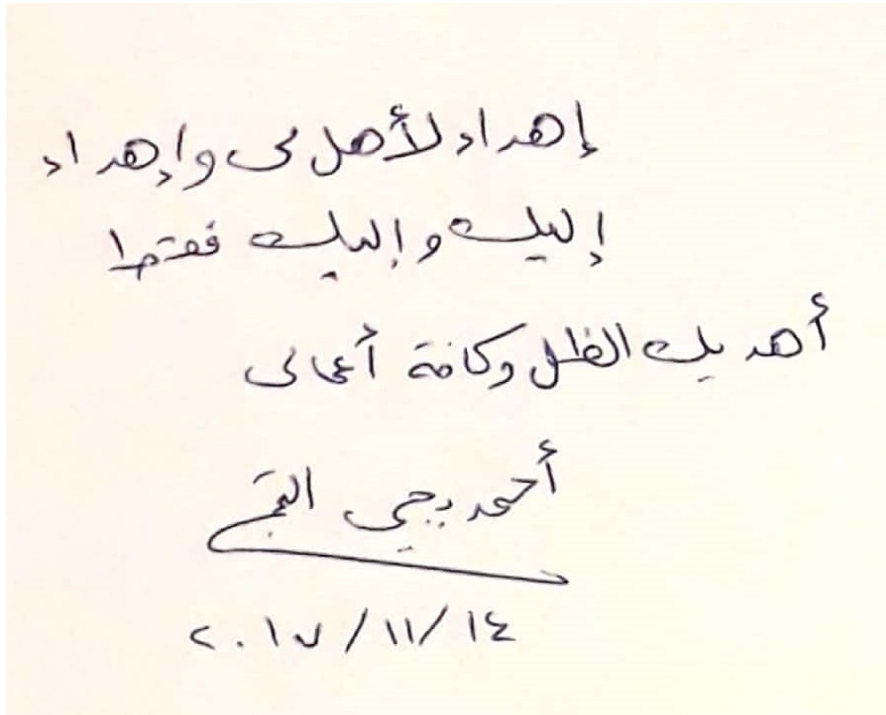 إهداء لأهلى وإهداء
إليك وإليك فقط
أهديك الظل وكافة أعمالى
أحمد يحيى
٢٠١٧/١١/١٤